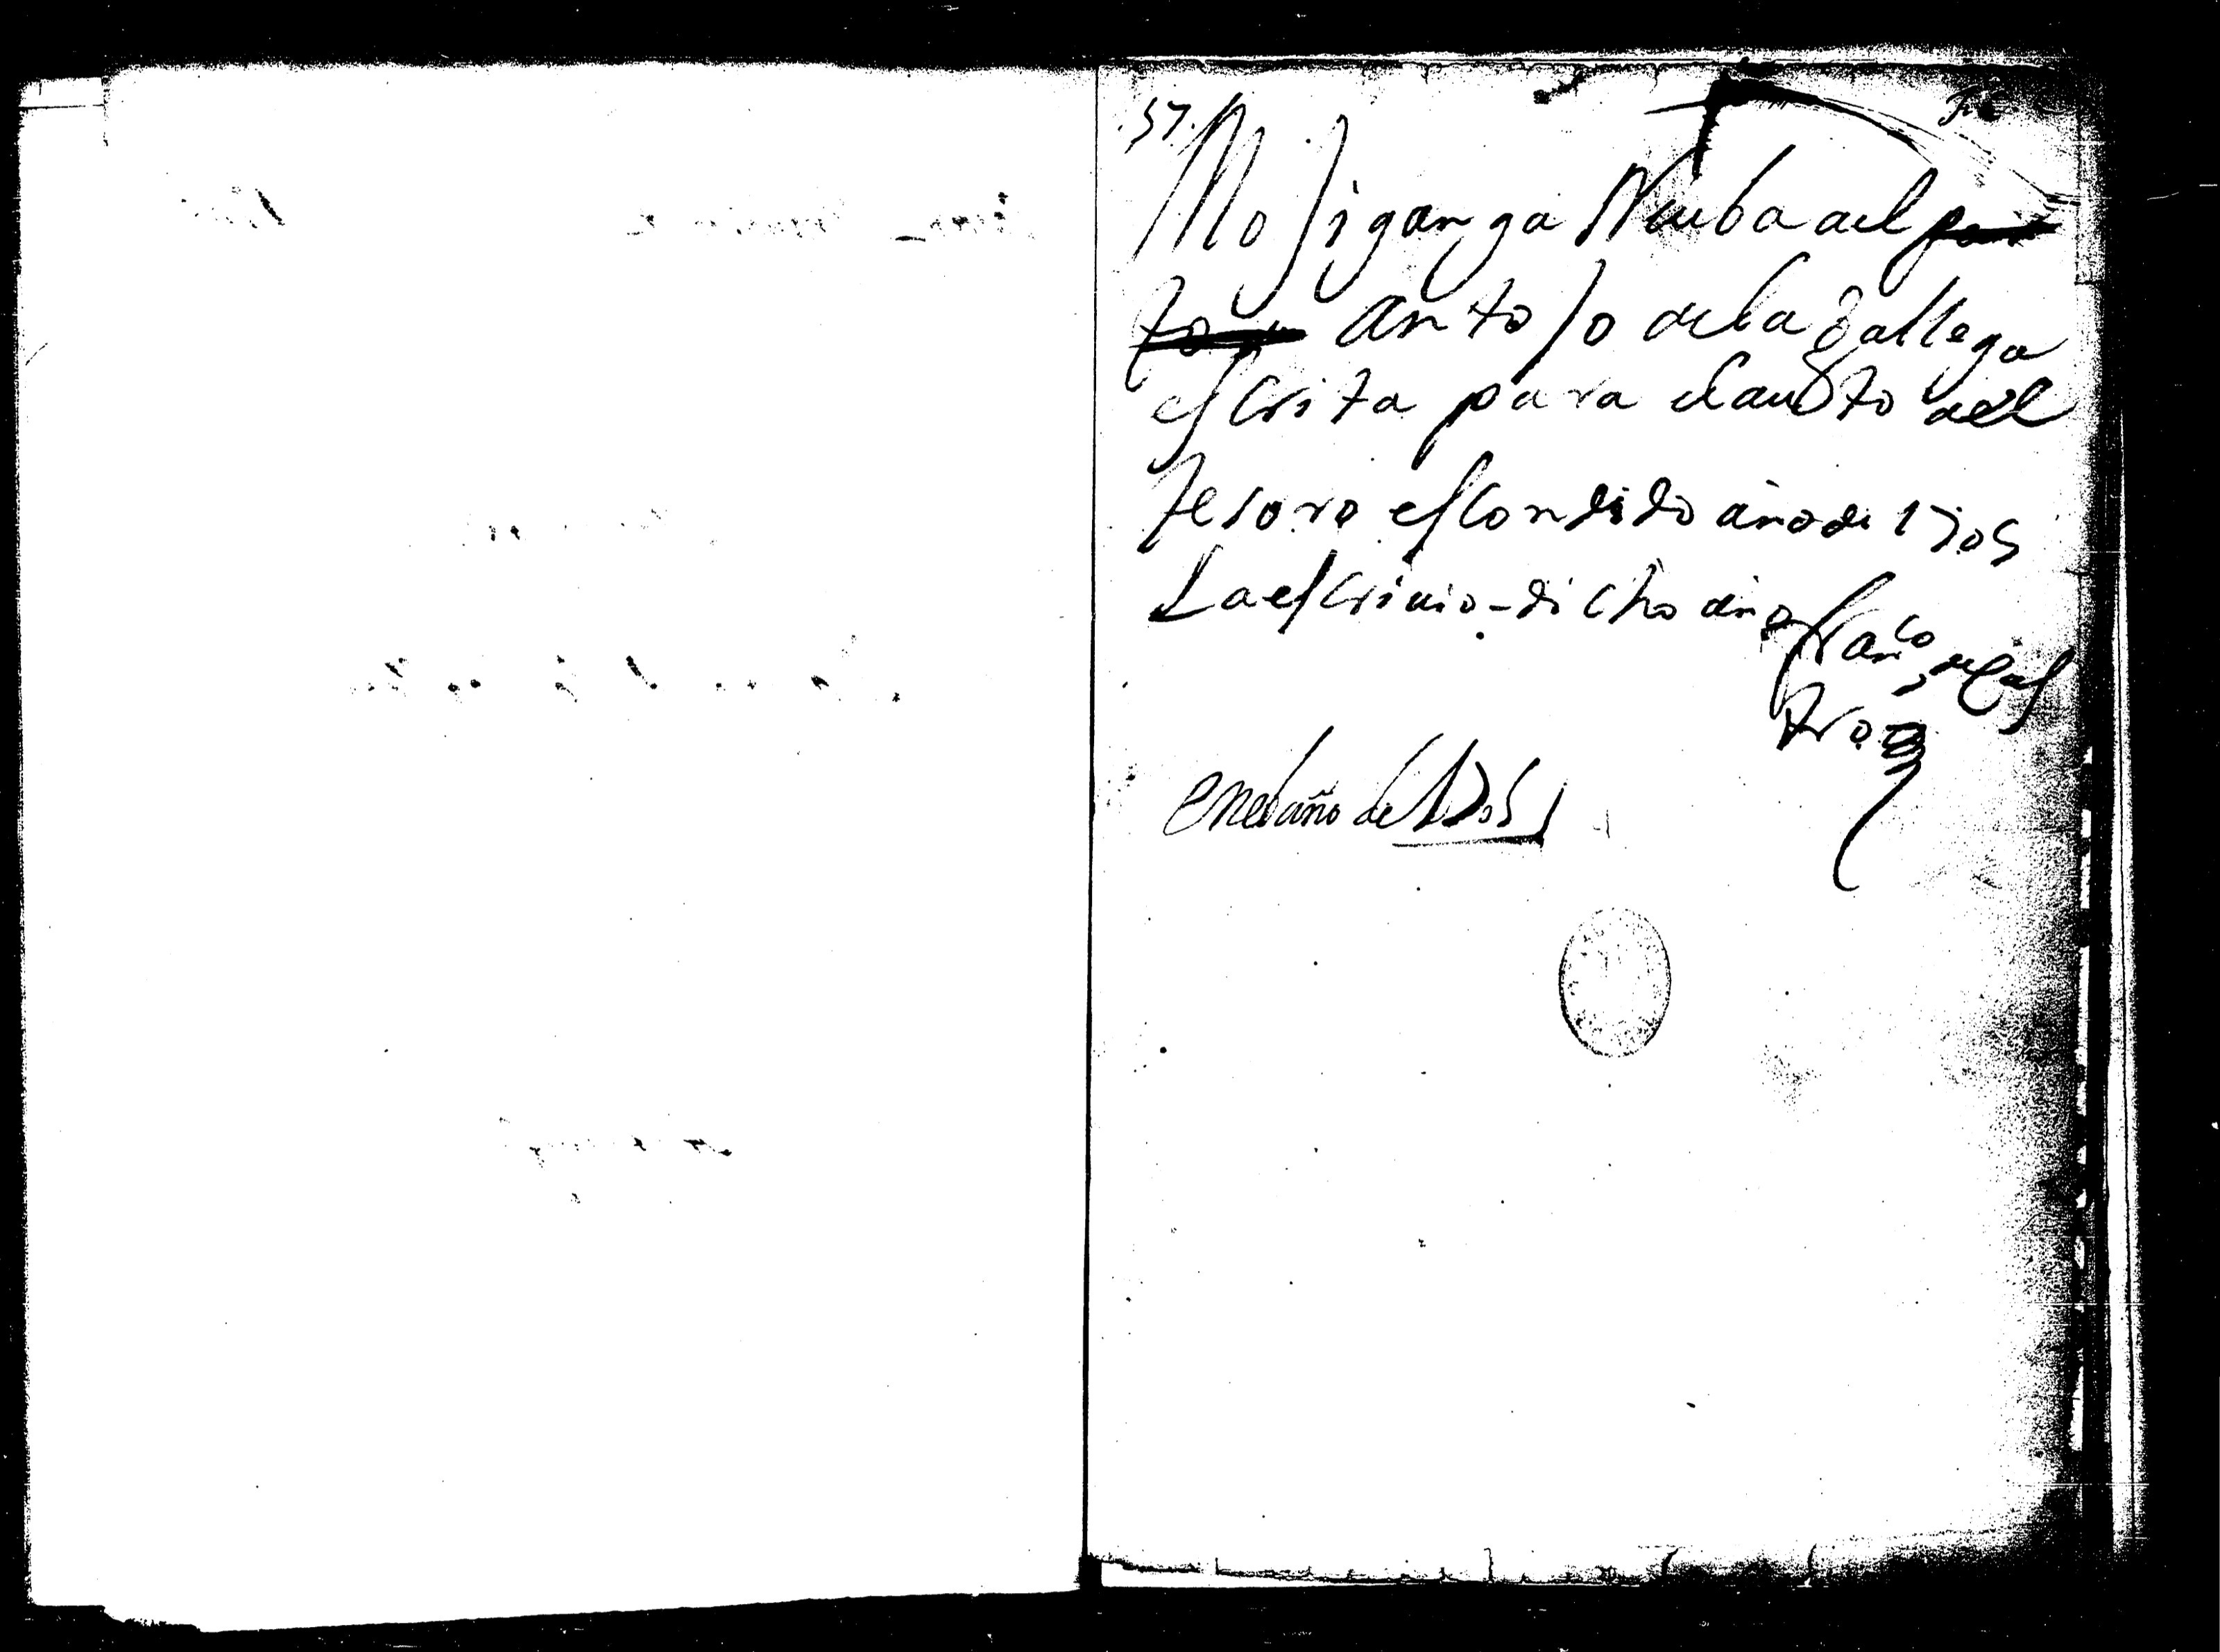 57.
Mojiganga Nueba del
antojo de la Gallega
escrita para el aucto del
tesoro escondido año de 1705
La escriuio - dicho año Franco de Cas
tro
en el año de 1705